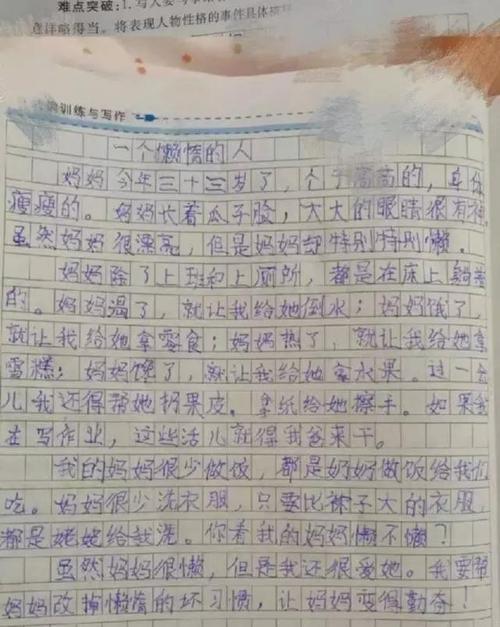 难点突破：1.写人要
详略得当。将表现人物性格的事件具体
训练与写作
一个懒惰的人
妈妈今年三十三岁了，个子高高的，身体
瘦瘦的。妈妈长着瓜子脸，大大的眼睛很有神。
虽然妈妈很漂亮，但是妈妈却特别特别懒。
妈妈除了上班和上厕所，都是在床上躺着
的。妈妈渴了，就让我给她倒水；妈妈饿了，
就让我给她拿零食；妈妈热了，就让我给她拿
雪糕；妈妈馋了，就让我给她拿水果。过一会
儿我还得帮她扔果皮。拿纸给她擦手。如果我
在写作业，这些活儿就得我爸来干。
我的妈妈很少做饭，都是奶奶做饭给我们
吃。妈妈很少洗衣服，只要比袜子大的衣服
都是姥姥给我洗。你看我的妈妈懒不懒？
虽然妈妈很懒，但是我还很爱她。我要帮
妈妈改掉懒惰的坏习惯，让妈妈变得勤奋！